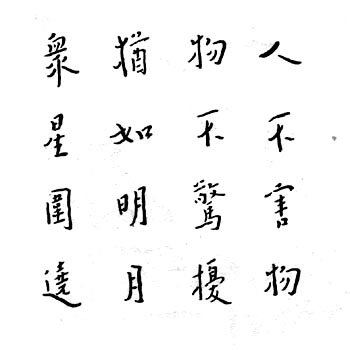 人不害物
物不驚擾
猶如明月
衆星圍遶